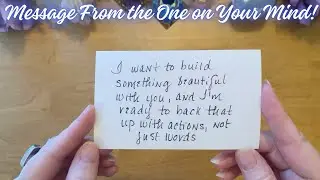 Message From the One on Your Mind!
I want to build
something beautiful
with you, and I'm
ready to back that
up with actions, not
just words